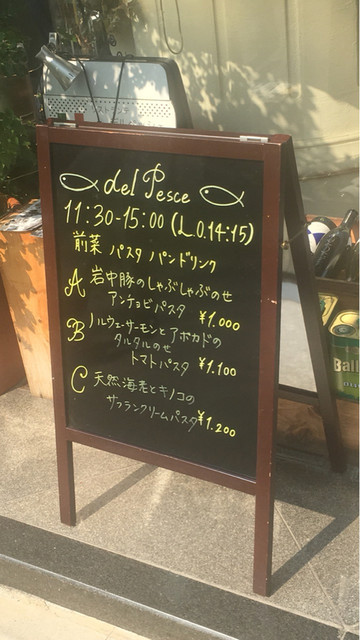 del Pesce
11:30-15:00 (L.O.14:15)
前菜 パスタ パン ドリンク
A 岩中豚のしゃぶしゃぶのせ
アンチョビパスタ ¥1.000
B ノルウェーサーモンとアボカドの
タルタルのせ
トマトパスタ ¥1.100
C 天然海老とキノコの
サフランクリームパスタ ¥1.200
Ball